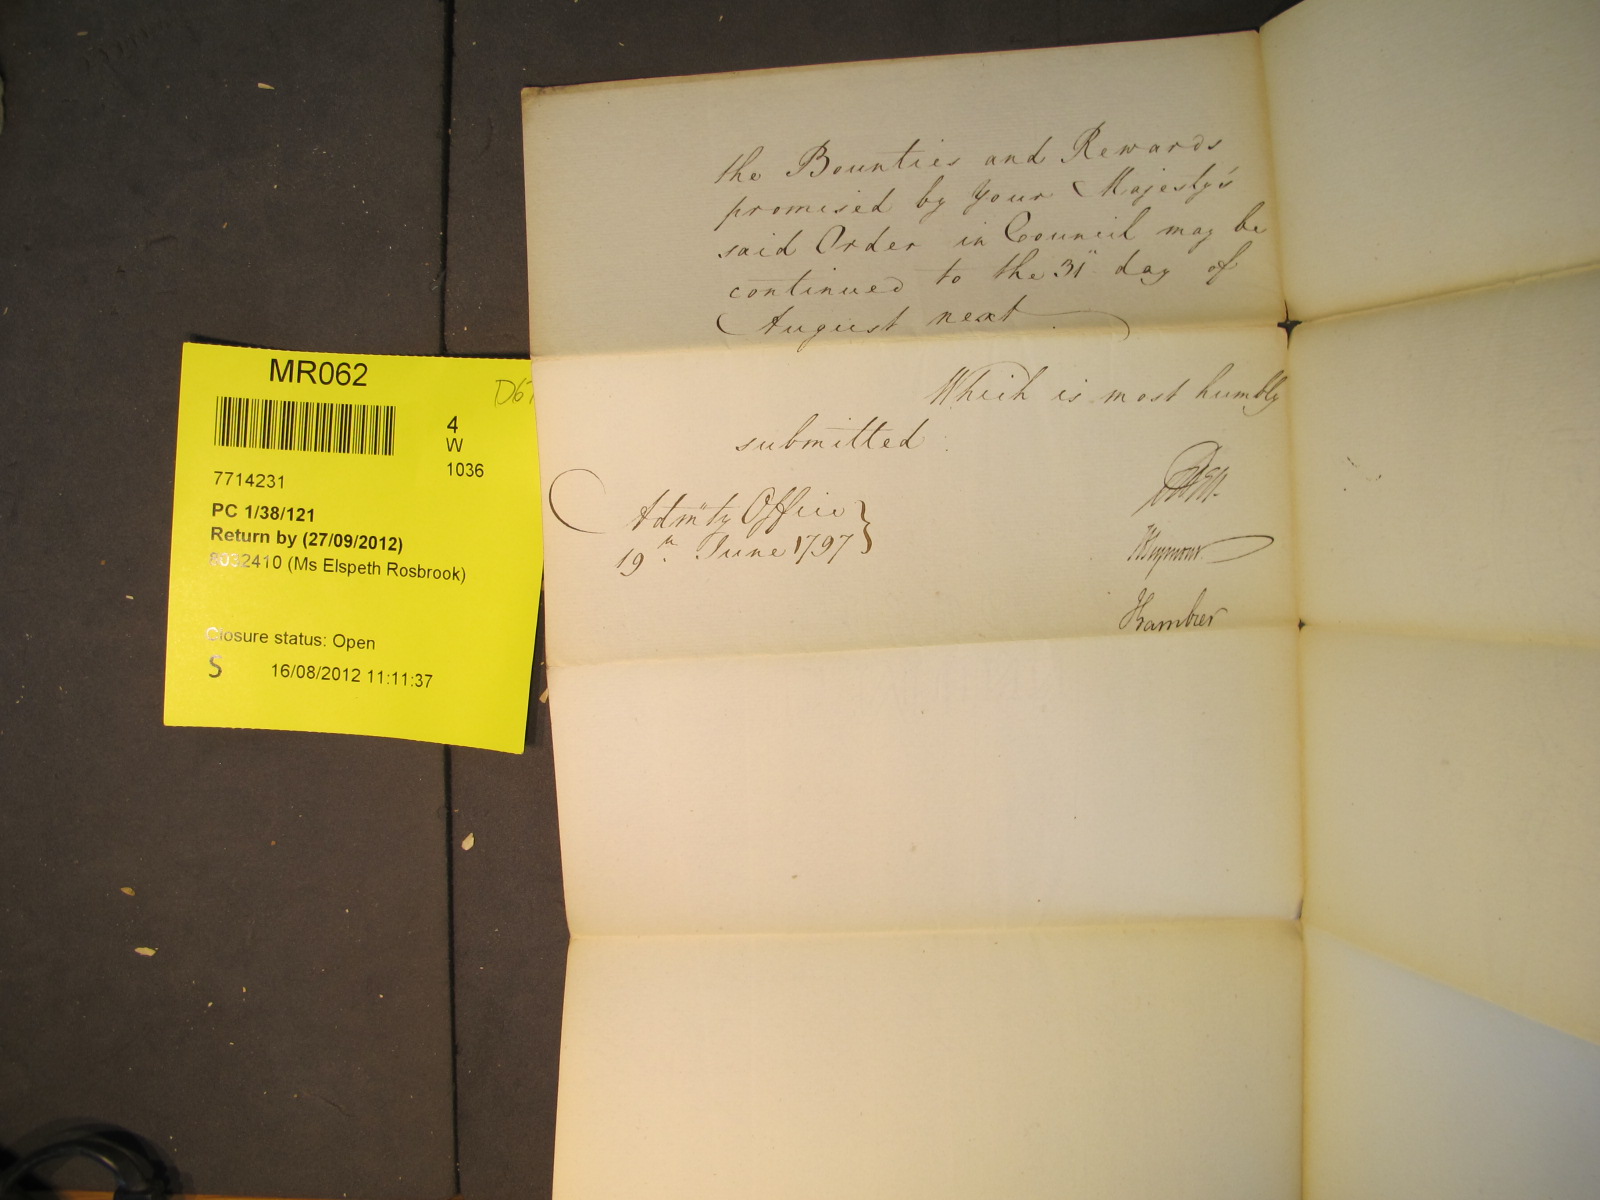 the Bounties and Rewards
promised by Your Majesty's
said Order in Council may be
continued to the 31st day of
August next
Which is most humbly
submitted.
Admty Office
19th June 1797
Gambier
MR062
4
W
1036
7714231
PC 1/38/121
Return by (27/09/2012)
8032410 (Ms Elspeth Rosbrook)
Closure status: Open
S 16/08/2012 11:11:37